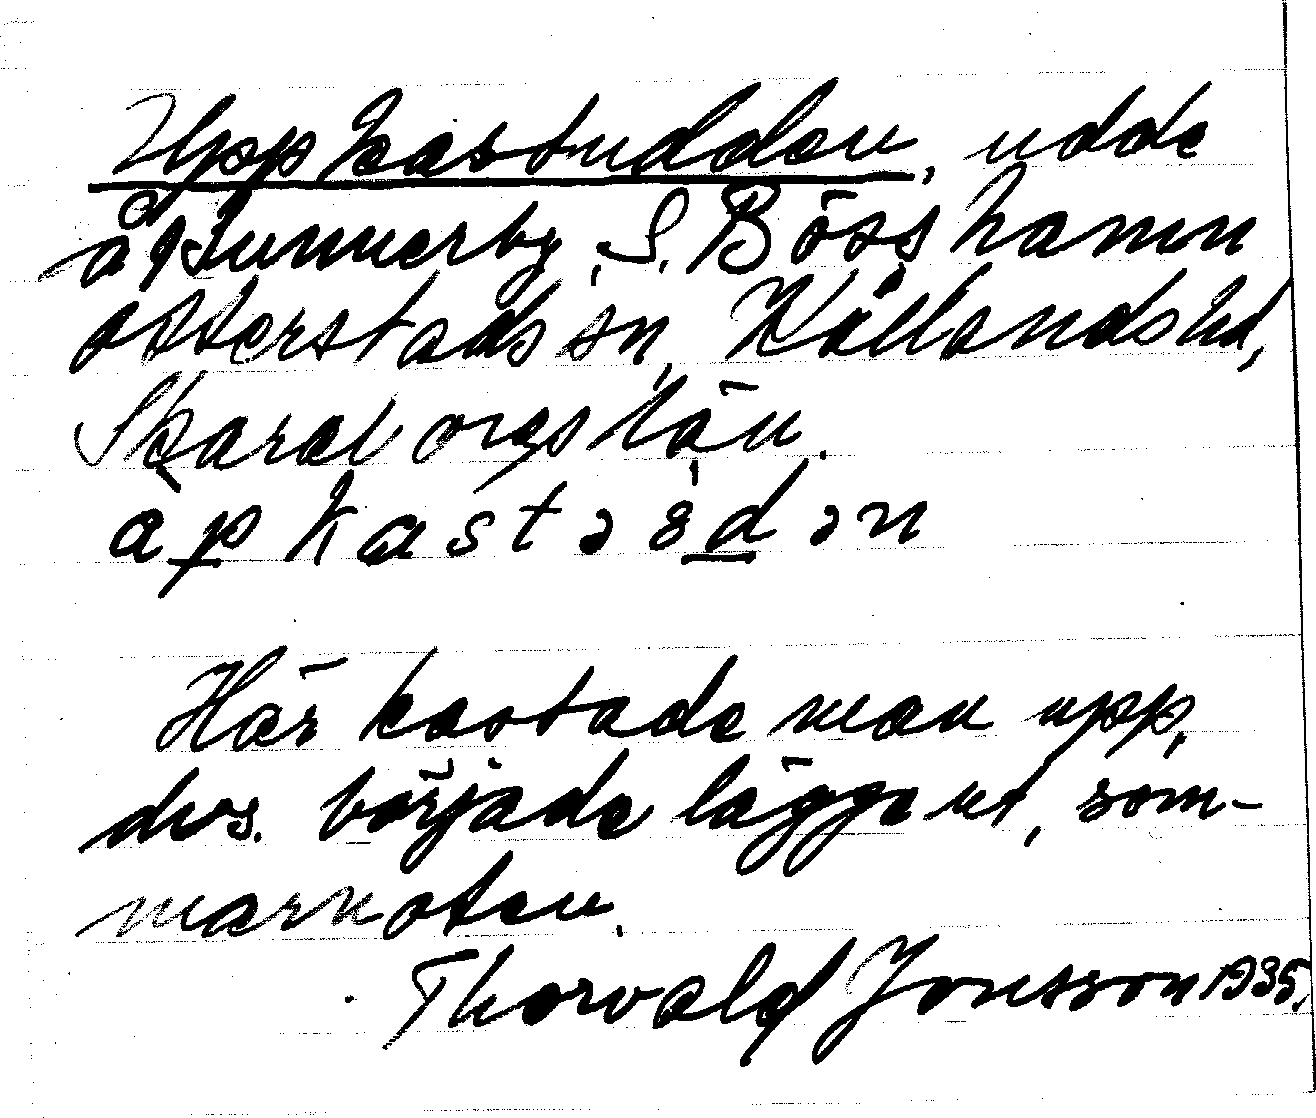 Uppkastudden, udde
å Gunnerby, S. Bösshamn
Otterstads sn, Kållands hd,
Skaraborgs län.
åpkastəɞdən
Här kastade man upp,
dvs. började lägga ut, som-
marnoten.
Thorvald Jonsson 1935.